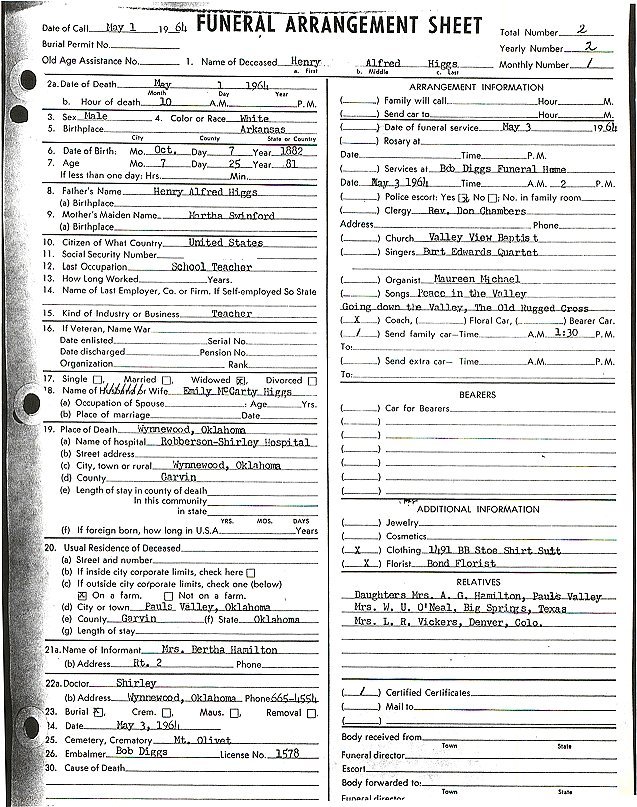 FUNERAL ARRANGEMENT SHEET
Date of Call May 1 1964
Total Number 2
Burial Permit No.
Yearly Number 2
Old Age Assistance No. 1. Name of Deceased Henry Alfred Higgs
a. First b. Middle c. Last
Monthly Number 1
2a. Date of Death May 1 1964
Month Day Year
b. Hour of death 10 A.M. P.M.
3. Sex Male 4. Color or Race White
5. Birthplace Arkansas
City County State or Country
6. Date of Birth: Mo. Oct. Day 7 Year 1882
7. Age Mo. 7 Day 25 Year 81
If less than one day: Hrs. Min.
8. Father's Name Henry Alfred Higgs
(a) Birthplace
9. Mother's Maiden Name Martha Swinford
(a) Birthplace
10. Citizen of What Country United States
11. Social Security Number
12. Last Occupation School Teacher
13. How Long Worked Years.
14. Name of Last Employer, Co. or Firm. If Self-employed So State
15. Kind of Industry or Business Teacher
16. If Veteran, Name War
Date enlisted Serial No.
Date discharged Pension No.
Organization Rank
17. Single Married Widowed X Divorced
18. Name of Husband or Wife Emily McCarty Higgs
(a) Occupation of Spouse : Age Yrs.
(b) Place of marriage Date
19. Place of Death Wynnewood, Oklahoma
(a) Name of hospital Robberson-Shirley Hospital
(b) Street address
(c) City, town or rural Wynnewood, Oklahoma
(d) County Garvin
(e) Length of stay in county of death
In this community
in state
YRS. MOS. DAYS
(f) If foreign born, how long in U.S.A. Years
20. Usual Residence of Deceased
(a) Street and number
(b) If inside city corporate limits, check here
(c) If outside city corporate limits, check one (below)
X On a farm. Not on a farm.
(d) City or town Pauls Valley, Oklahoma
(e) County Garvin (f) State Oklahoma
(g) Length of stay
21a. Name of Informant Mrs. Bertha Hamilton
(b) Address Rt. 2 Phone
22a. Doctor Shirley
(b) Address Wynnewood, Oklahoma Phone 665-4554
23. Burial X, Crem. , Maus. , Removal .
24. Date May 3, 1964
25. Cemetery, Crematory Mt. Olivet
26. Embalmer Bob Diggs License No. 1578
30. Cause of Death
ARRANGEMENT INFORMATION
( ) Family will call Hour M.
( ) Send car to Hour M.
( ) Date of funeral service May 3 1964
( ) Rosary at
Date Time P.M.
( ) Services at Bob Diggs Funeral Home
Date May 3 1964 Time A.M. 2 P.M.
( ) Police escort: Yes X No ; No. in family room
( ) Clergy Rev. Don Chambers
Address Phone
( ) Church Valley View Baptist
( ) Singers Burt Edwards Quartet
( ) Organist Maureen Michael
( ) Songs Peace in the Valley
Going down the Valley, The Old Rugged Cross
( X ) Coach, ( ) Floral Car, ( ) Bearer Car.
( / ) Send family car—Time A.M. 1:30 P.M.
To:
( ) Send extra car— Time A.M. P.M.
To:
BEARERS
( ) Car for Bearers
( )
( )
( )
( )
( )
( )
ADDITIONAL INFORMATION
( ) Jewelry
( ) Cosmetics
( X ) Clothing 1491 BB Stoe Shirt Suit
( X ) Florist Bond Florist
RELATIVES
Daughters Mrs. A. G. Hamilton, Pauls Valley
Mrs. W. U. O'Neal, Big Springs, Texas
Mrs. L. R. Vickers, Denver, Colo.
( / ) Certified Certificates
( ) Mail to
( )
Body received from
Town State
Funeral director
Escort
Body forwarded to:
Town State
Funeral director